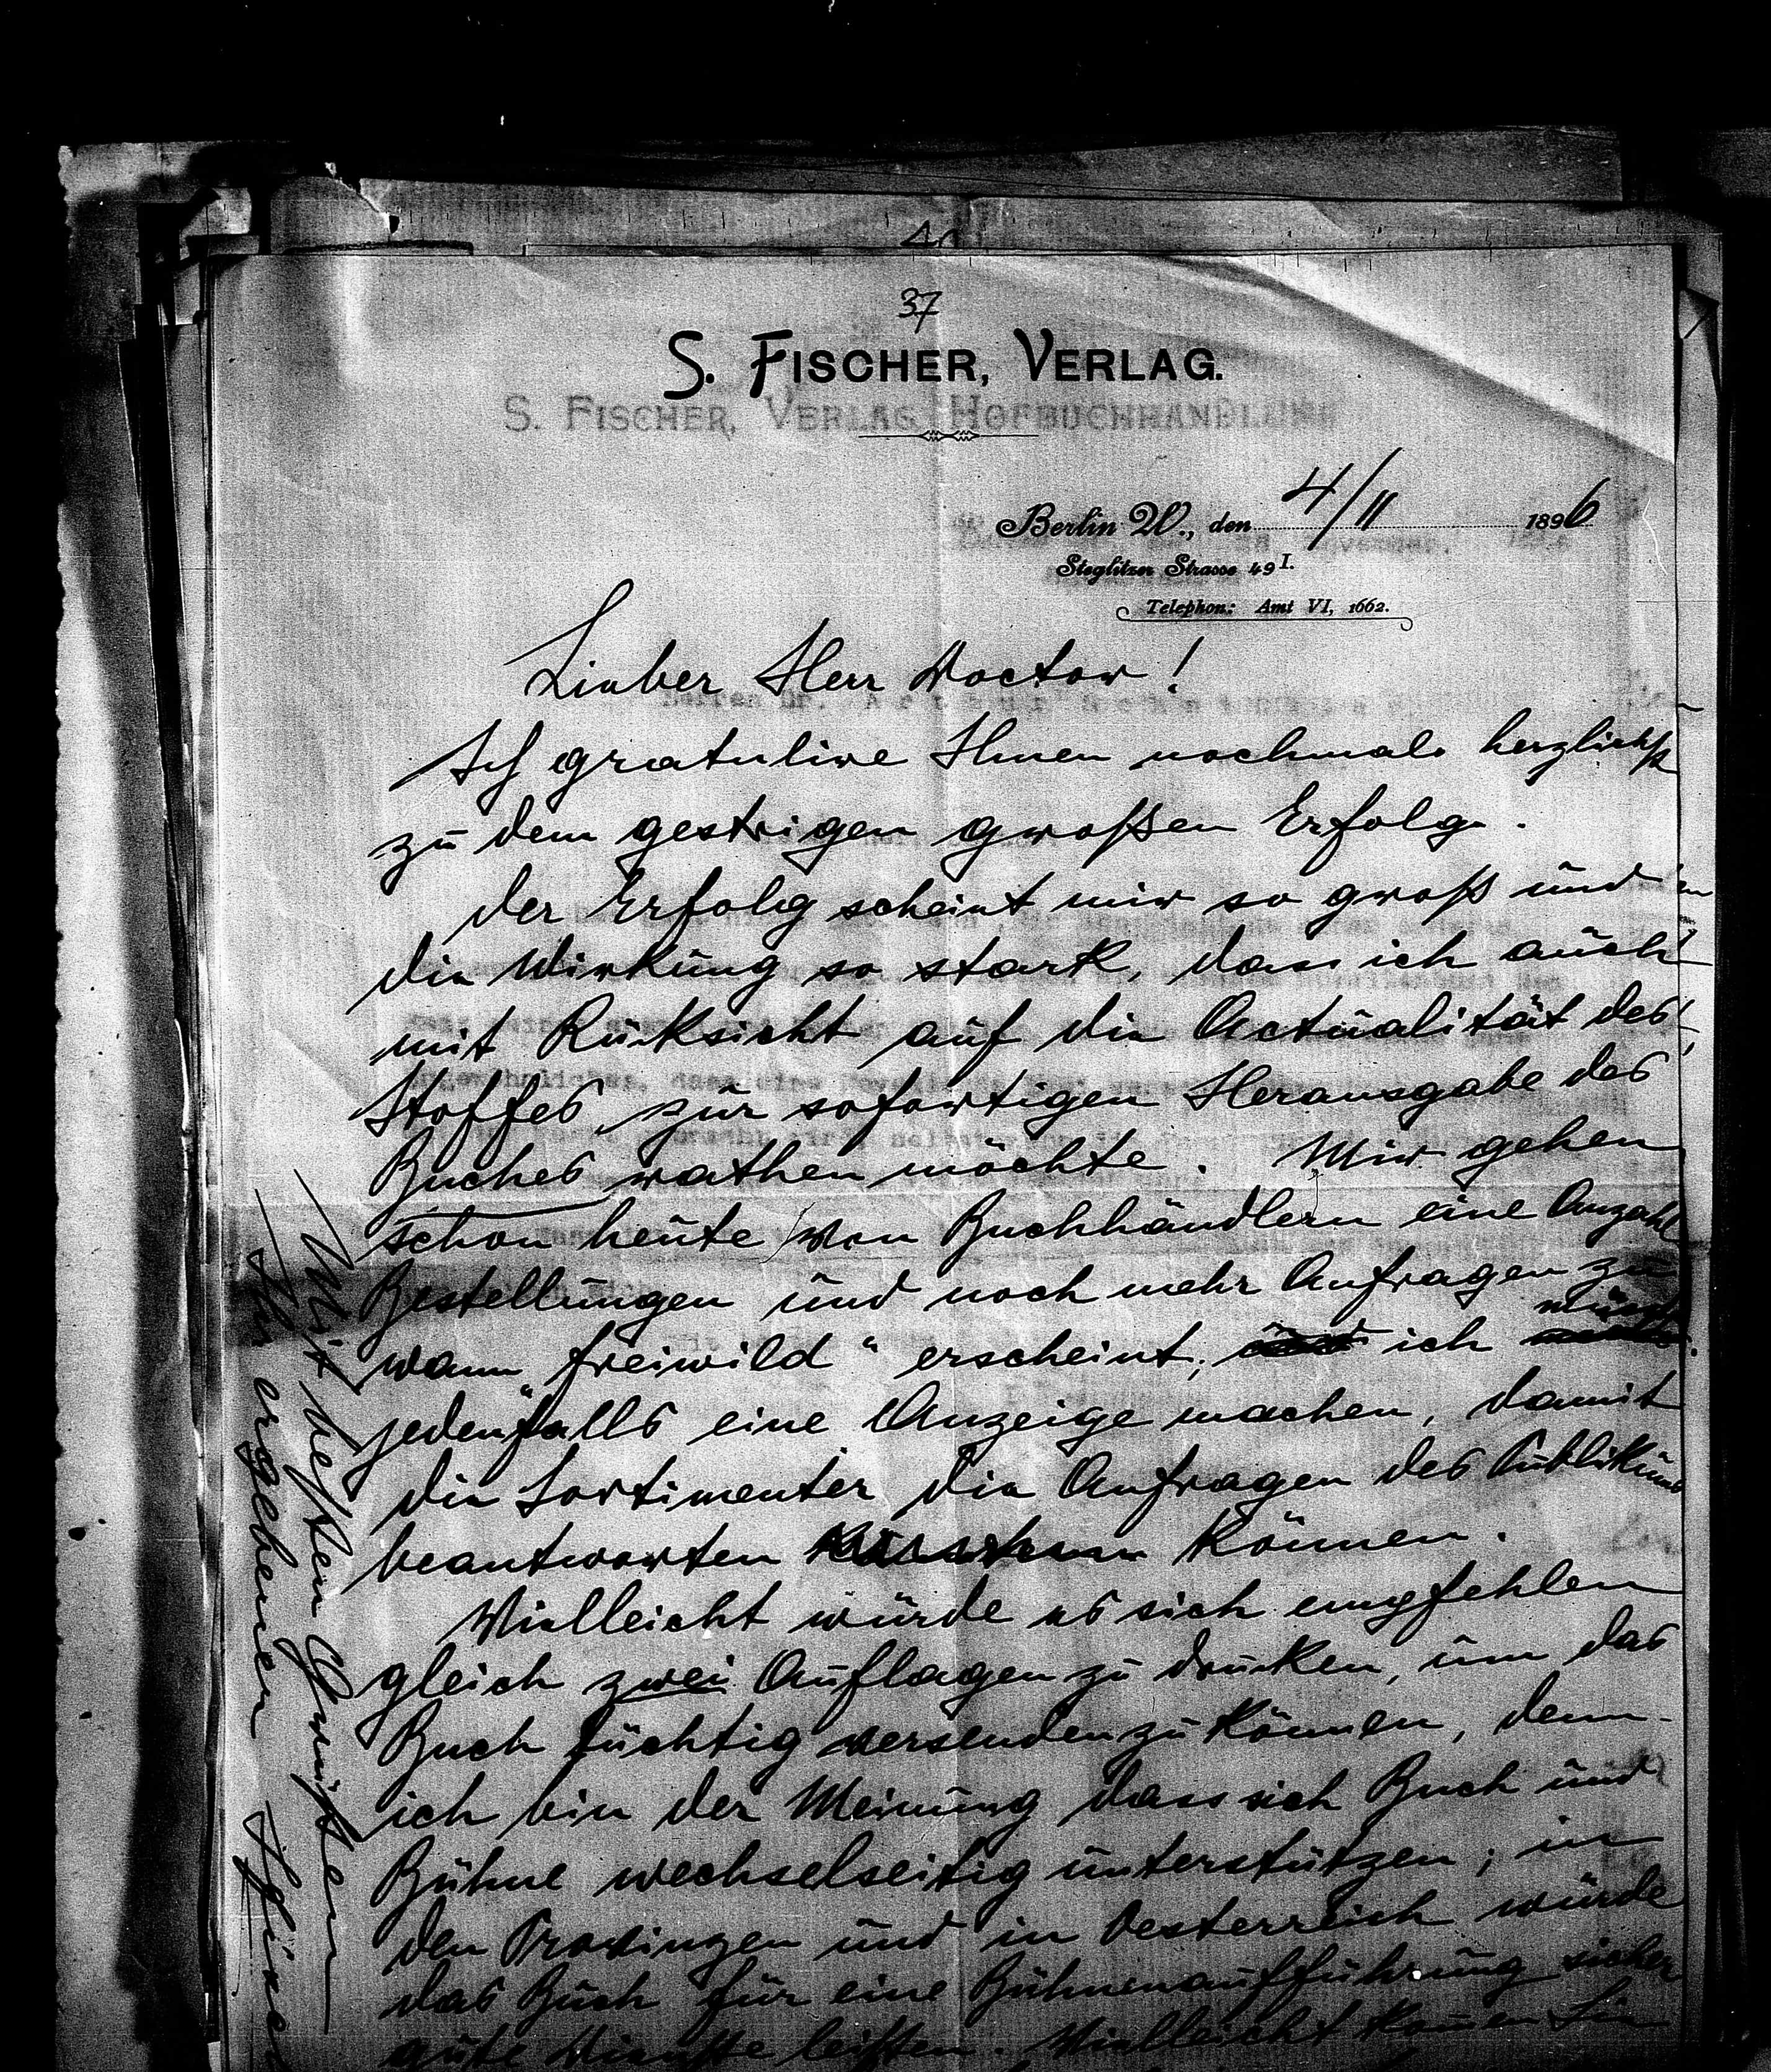 37
S. FISCHER, VERLAG.
S. FISCHER, VERLAG, HOFBUCHHANDLUNG
Berlin W., den 4/11 1896
Steglitzer Strasse 49 I.
Telephon: Amt VI, 1662.
Lieber Herr Doctor!
Ich gratulire Ihnen nochmals herzlichst
zu dem gestrigen großen Erfolg.
Der Erfolg scheint mir so groß und
die Wirkung so stark, dass ich auch
mit Rücksicht auf die Actualität des
Stoffes, zur sofortigen Herausgabe des
Buches rathen möchte. Mir gehen
schon heute von Buchhändlern eine Anzahl
Bestellungen und noch mehr Anfragen zu
wann „Freiwild“ erscheint; ich müsst
jedenfalls eine Anzeige machen, damit
die Sortimenter die Anfragen des Publikums
beantworten können.
Vielleicht würde es sich empfehlen
gleich zwei Auflagen zu drucken, um das
Buch tüchtig versenden zu können, denn
ich bin der Meinung dass sich Buch und
Bühne wechselseitig unterstützen; in
den Provinzen und in Oesterreich würde
das Buch für eine Bühnenaufführung sicher
gute Dienste leisten. Vielleicht können Sie
Mit besten Grüßen
Ihr ergebener SFischer